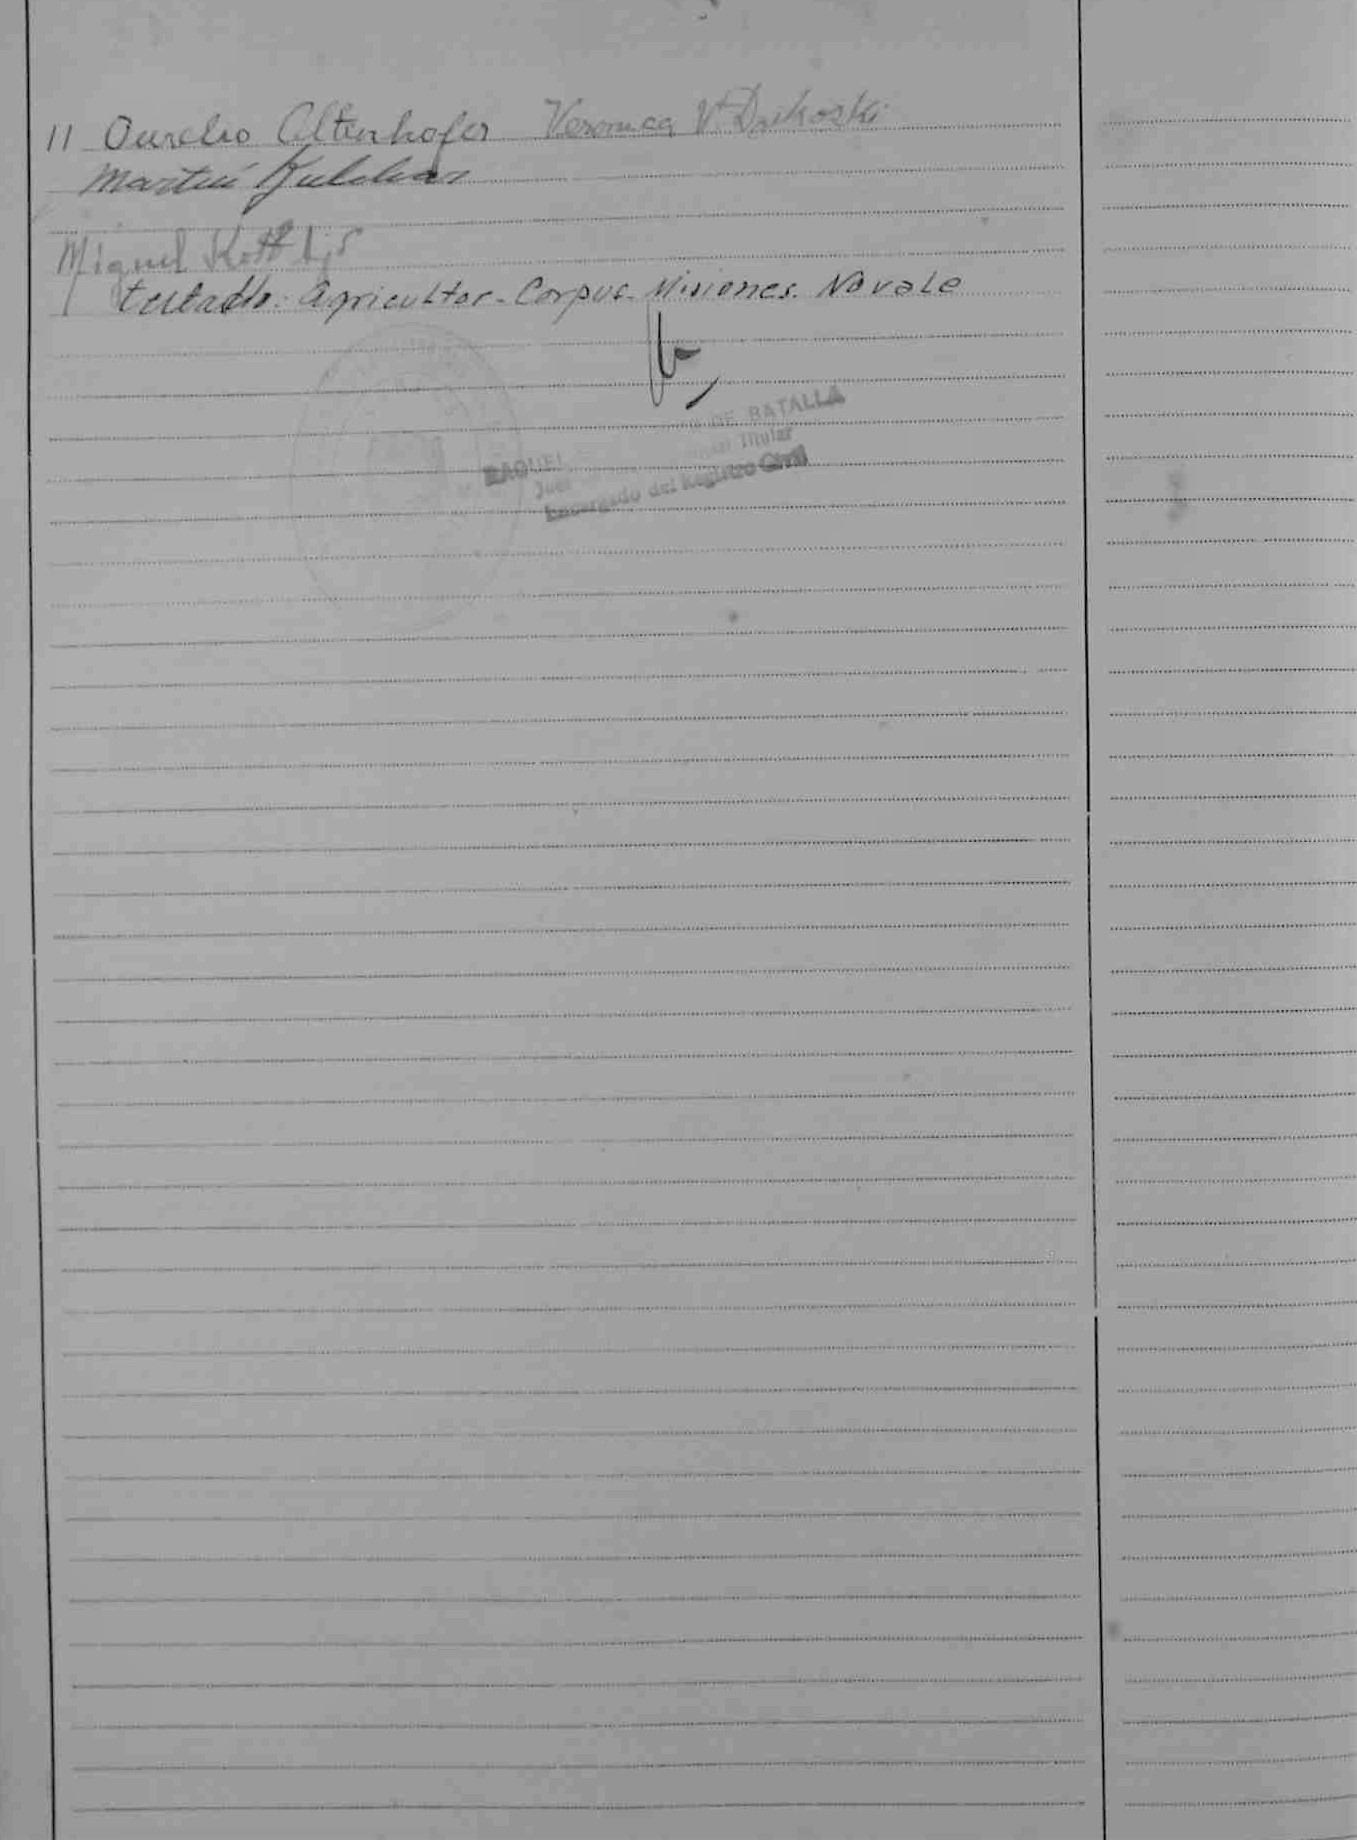 11 Aurelio Altenhofer Veronica V. Daikoski
Martin
Miguel
testado: Agricultor - Corpus - Misiones. No vale
RAQUEL DE BATALLA
Juez Titular
Encargado del Registro Civil